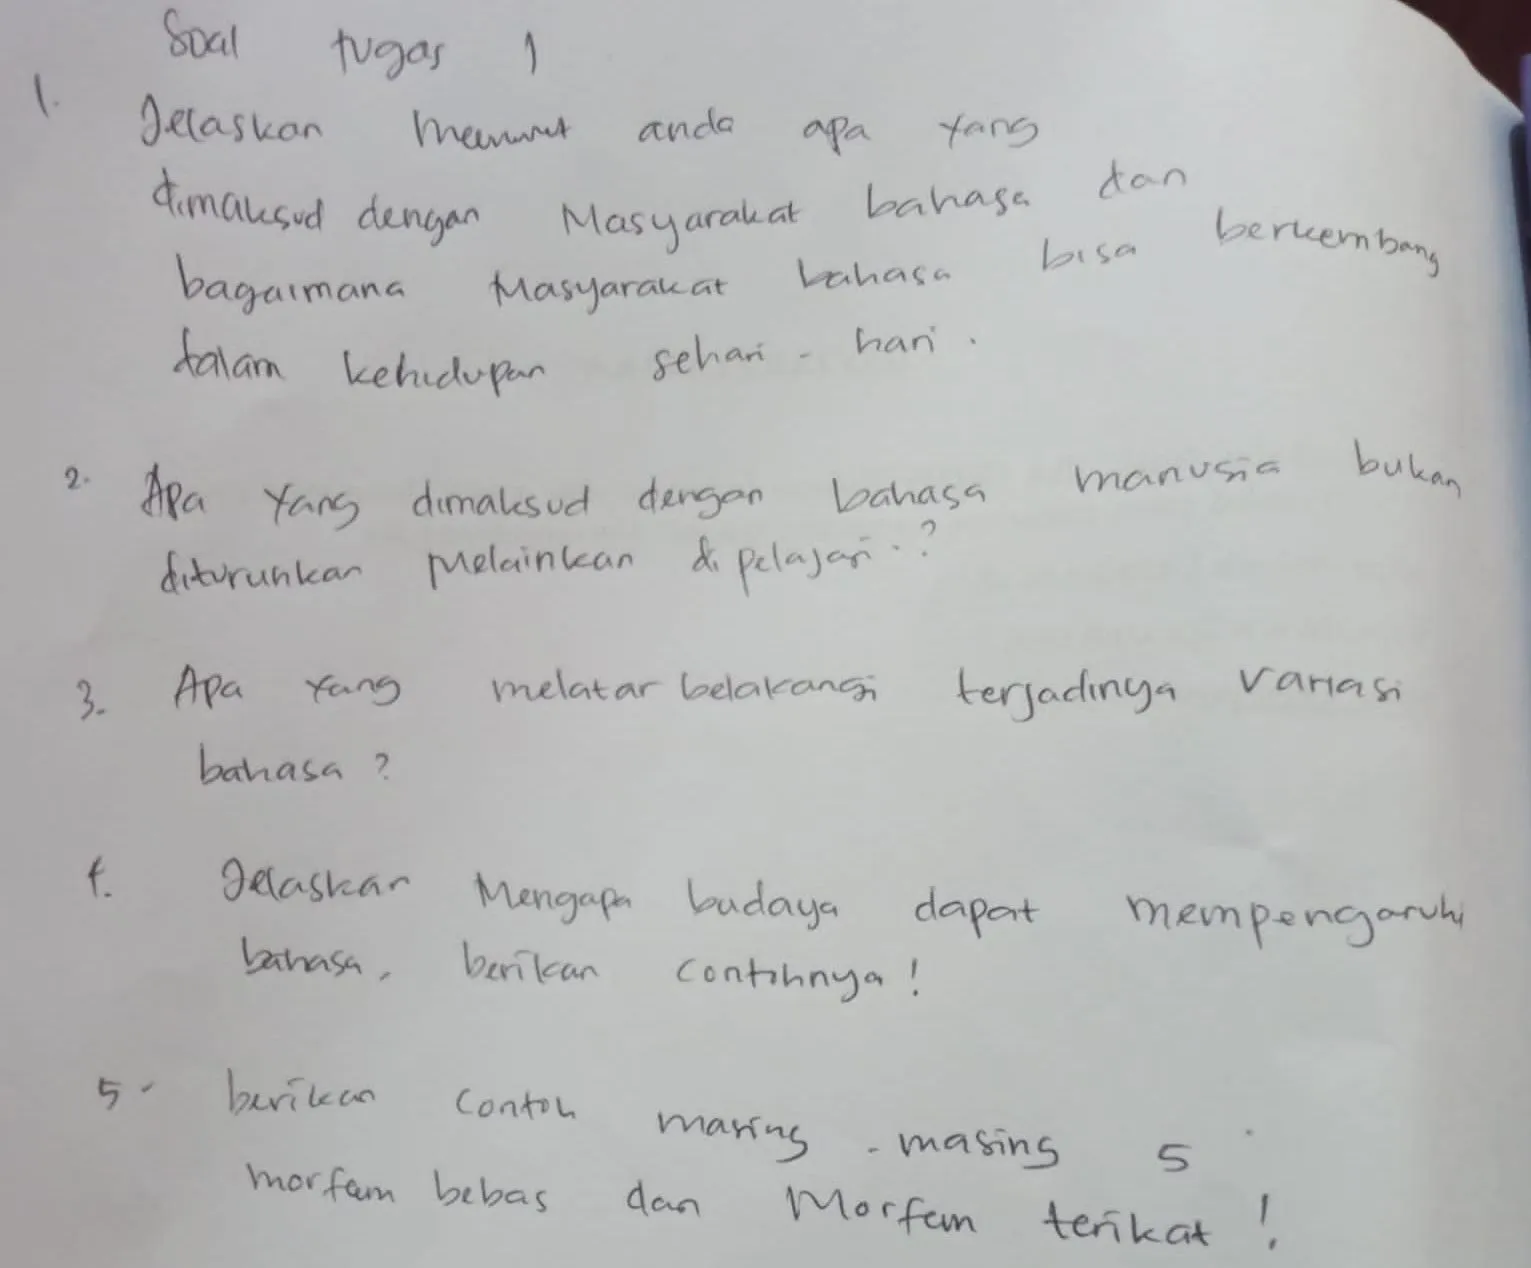 Soal tugas 1
1. Jelaskan menurut anda apa yang
dimaksud dengan Masyarakat bahasa dan
bagaimana Masyarakat bahasa bisa berkembang
dalam kehidupan sehari - hari.
2. Apa yang dimaksud dengan bahasa manusia bukan
diturunkan melainkan di pelajari..?
3. Apa yang melatar belakangi terjadinya variasi
bahasa ?
4. Jelaskan Mengapa budaya dapat mempengaruhi
bahasa, berikan contohnya !
5. berikan contoh masing - masing 5
morfem bebas dan Morfem terikat !